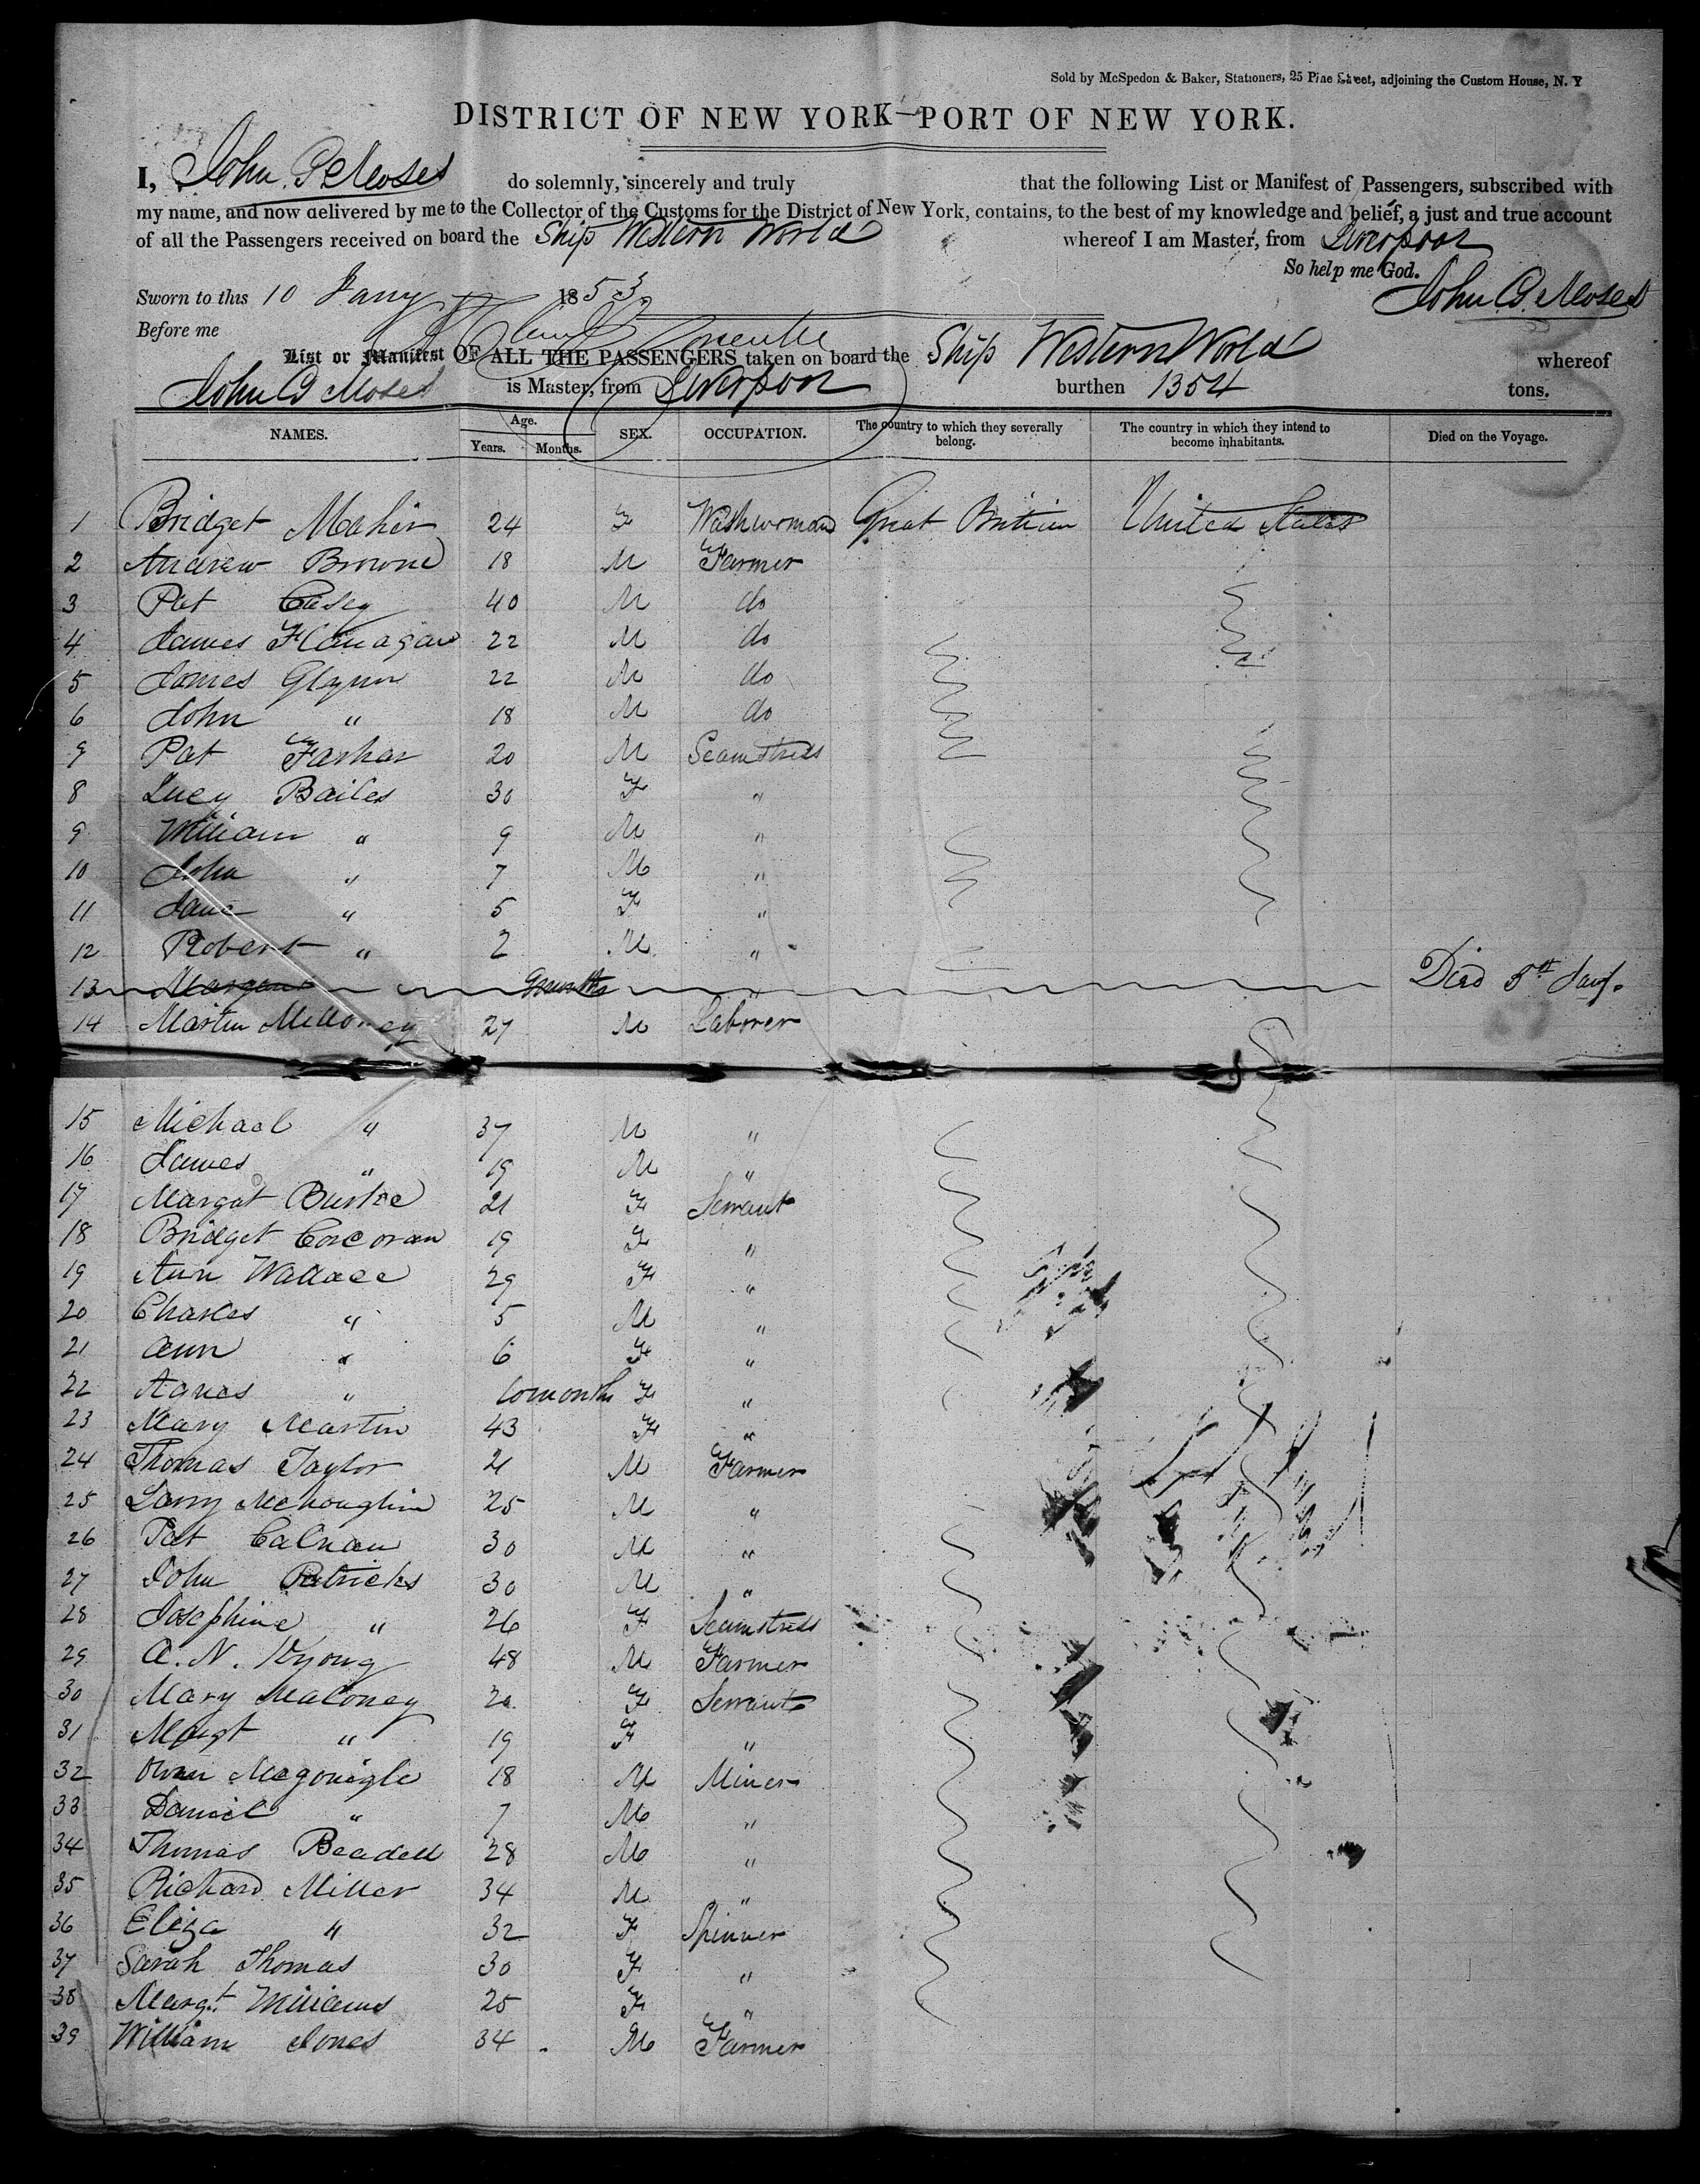 Sold by McSpedon & Baker, Stationers, 25 Pine Street, adjoining the Custom House, N. Y
DISTRICT OF NEW YORK—PORT OF NEW YORK.
I, John D Moses do solemnly, sincerely and truly that the following List or Manifest of Passengers, subscribed with
my name, and now delivered by me to the Collector of the Customs for the District of New York, contains, to the best of my knowledge and belief, a just and true account
of all the Passengers received on board the Ship Western World whereof I am Master, from Liverpool
So help me God.
Sworn to this 10 Jany 1853. John D. Moses
Before me
List or Manifest OF ALL THE PASSENGERS taken on board the Ship Western World whereof
John D Moses is Master, from Liverpool burthen 1354 tons.
NAMES. Age. Years. Months. SEX. OCCUPATION. The country to which they severally belong. The country in which they intend to become inhabitants. Died on the Voyage.
1 Bridget Maher 24 F Washwoman Great Britian United States
2 Andrew Browne 18 M Farmer
3 Pat Casey 40 M do
4 James Flanagan 22 M do
5 James Glynn 22 M do
6 John " 18 M do
9 Pat Farhar 20 M Seamstress
8 Lucy Bailes 30 F "
9 William " 9 M "
10 John " 7 M "
11 Jane " 5 F "
12 Robert " 2 M "
13 9 months " Died 5th Jany.
14 Martin Mulloney 27 M Laborer
15 Michael " 37 M "
16 James " 19 M "
17 Margat Burke 21 F Servant
18 Bridget Corcoran 19 F "
19 Ann Wallace 29 F "
20 Charles " 5 M "
21 Ann " 6 F "
22 Agnes " 10 months F "
23 Mary Martin 43 F "
24 Thomas Taylor 21 M Farmer
25 Larry McLoughlin 25 M "
26 Pat Calnan 30 M "
27 John Patricks 30 M "
28 Josephine " 26 F Seamstress
29 A. N. 48 M Farmer
30 Mary Maloney 20 F Servant
31 Margt " 19 F "
32 Owen Magonigle 18 M Miner
33 Daniel " 7 M "
34 Thomas Beadell 28 M "
35 Richard Miller 34 M "
36 Eliza " 32 F Spinner
37 Sarah Thomas 30 F "
38 Margt Williams 25 F "
39 William Jones 34 M Farmer